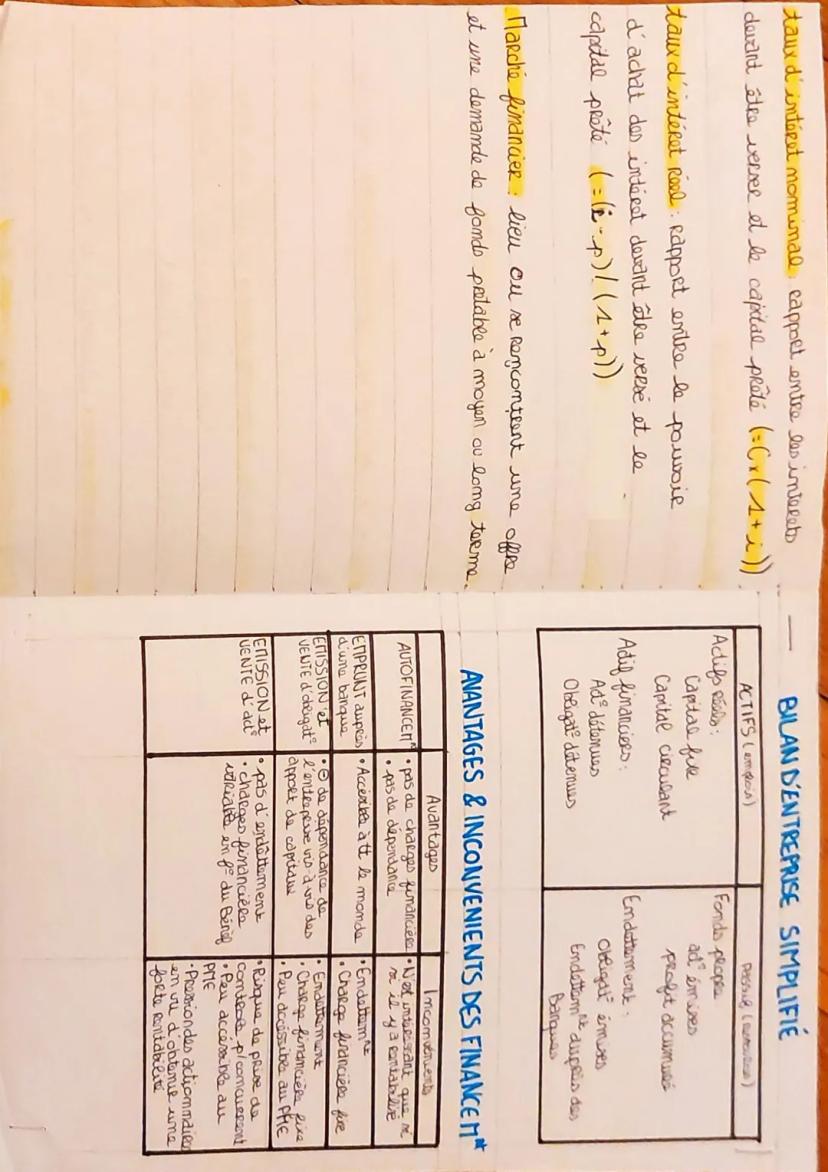 taux d'intéret nominal : rapport entre les interets
devant être verser et le capital prêté (=C×(1+i))
taux d'intéret Réel : Rapport entre le pouvoir
d'achat des intéret devant être versé et le
capital prêté (=(i-p)/(1+p))
Marché financier : lieu ou se rencontrent une offre
et une demande de fonds prêtable à moyen ou long terme.
BILAN D'ENTREPRISE SIMPLIFIÉ
ACTIFS (emplois)
PASSIFS (ressources)
Actifs Réels :
Capital fixe
Capital circulant
Actif financiers :
Act° détenues
Obligat° détenues
Fonds propre
act° émises
profit accumulé
Endettement :
Obligat° émises
Endettemnt auprès des
Banques
AVANTAGES & INCONVENIENTS DES FINANCEMnt
Avantages
Inconvénients
AUTOFINANCEMnt
• pas de charges financière
• pas de dépendance
• N'est interessant que si
si il y a rentabilité
EMPRUNT auprès
d'une banque
• Accessible à tt le monde
• Endettemnt
• Charge financière fixe
EMISSION et
VENTE d'obligat°
• ⊖ de dépendance de
l'entreprise vis-à-vis des
apport de capitaux
• Endettement
• Charge financière fixe
• Peu accessible au PME
EMISSION et
VENTE d'act°
• pas d'endettement
• charges financière
variable en f° du Bénéf
• Risque de prise de
controle p/ concurrent
• Peu accessible au
PME
• Pression des actionnaires
en vu d'obtenir une
forte rentabilité